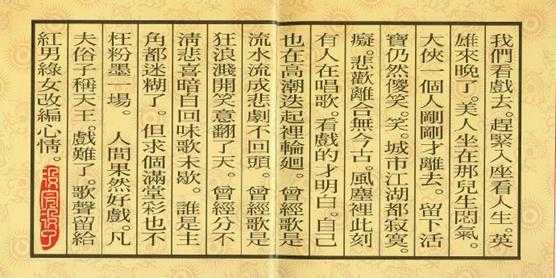 我們看戲去。趕緊入座看人生。英
雄來晚了。美人坐在那兒生悶氣。
大俠一個人剛剛才離去。留下活
寶仍然傻笑。笑。城市江湖都寂寞。
癡。悲歡離合無今古。風塵裡此刻
有人在唱歌。看戲的才明白。自己
也在高潮迭起裡輪廻。曾經是
流水流成悲劇不回頭。曾經歌是
狂浪濺開笑意翻了天。曾經分不
淸悲喜暗自回味歌未歇。誰是主
角都迷糊了。但求個滿堂彩也不
枉粉墨一場。 人間果然好戲。凡
夫俗子稱天王。戲難了。歌聲留給
紅男綠女改編心情。
沒完沒了